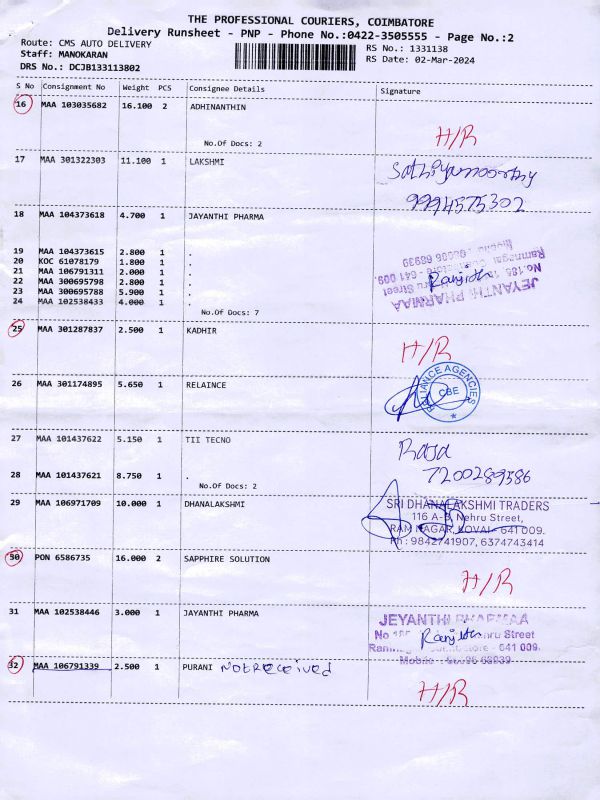 THE PROFESSIONAL COURIERS, COIMBATORE
Delivery Runsheet - PNP - Phone No.:0422-3505555 - Page No.:2
Route: CMS AUTO DELIVERY RS No.: 1331138
Staff: MANOKARAN RS Date: 02-Mar-2024
DRS No.: DCJB133113802
S No Consignment No Weight PCS Consignee Details Signature
16 MAA 103035682 16.100 2 ADHINANTHIN
H/R
No.Of Docs: 2
17 MAA 301322303 11.100 1 LAKSHMI
Sathiyamoorthy
9994575302
18 MAA 104373618 4.700 1 JAYANTHI PHARMA
19 MAA 104373615 2.800 1 .
20 KOC 61078179 1.800 1 .
21 MAA 106791311 2.000 1 .
22 MAA 300695798 2.800 1 .
23 MAA 300695788 5.900 1 .
24 MAA 102538433 4.000 1 .
JEYANTHI PHARMAA
Ranjith
No.Of Docs: 7
25 MAA 301287837 2.500 1 KADHIR
H/R
26 MAA 301174895 5.650 1 RELAINCE
RELIANCE AGENCIES
CBE
27 MAA 101437622 5.150 1 TII TECNO
Raja
7200289386
28 MAA 101437621 8.750 1 .
No.Of Docs: 2
29 MAA 106971709 10.000 1 DHANALAKSHMI
SRI DHANALAKSHMI TRADERS
116 A-B, Nehru Street,
RAM NAGAR, KOVAI - 641 009.
Ph : 9842741907, 6374743414
30 PON 6586735 16.000 2 SAPPHIRE SOLUTION
H/R
31 MAA 102538446 3.000 1 JAYANTHI PHARMA
JEYANTHI PHARMAA
Ranjith
32 MAA 106791339 2.500 1 PURANI Not received
H/R